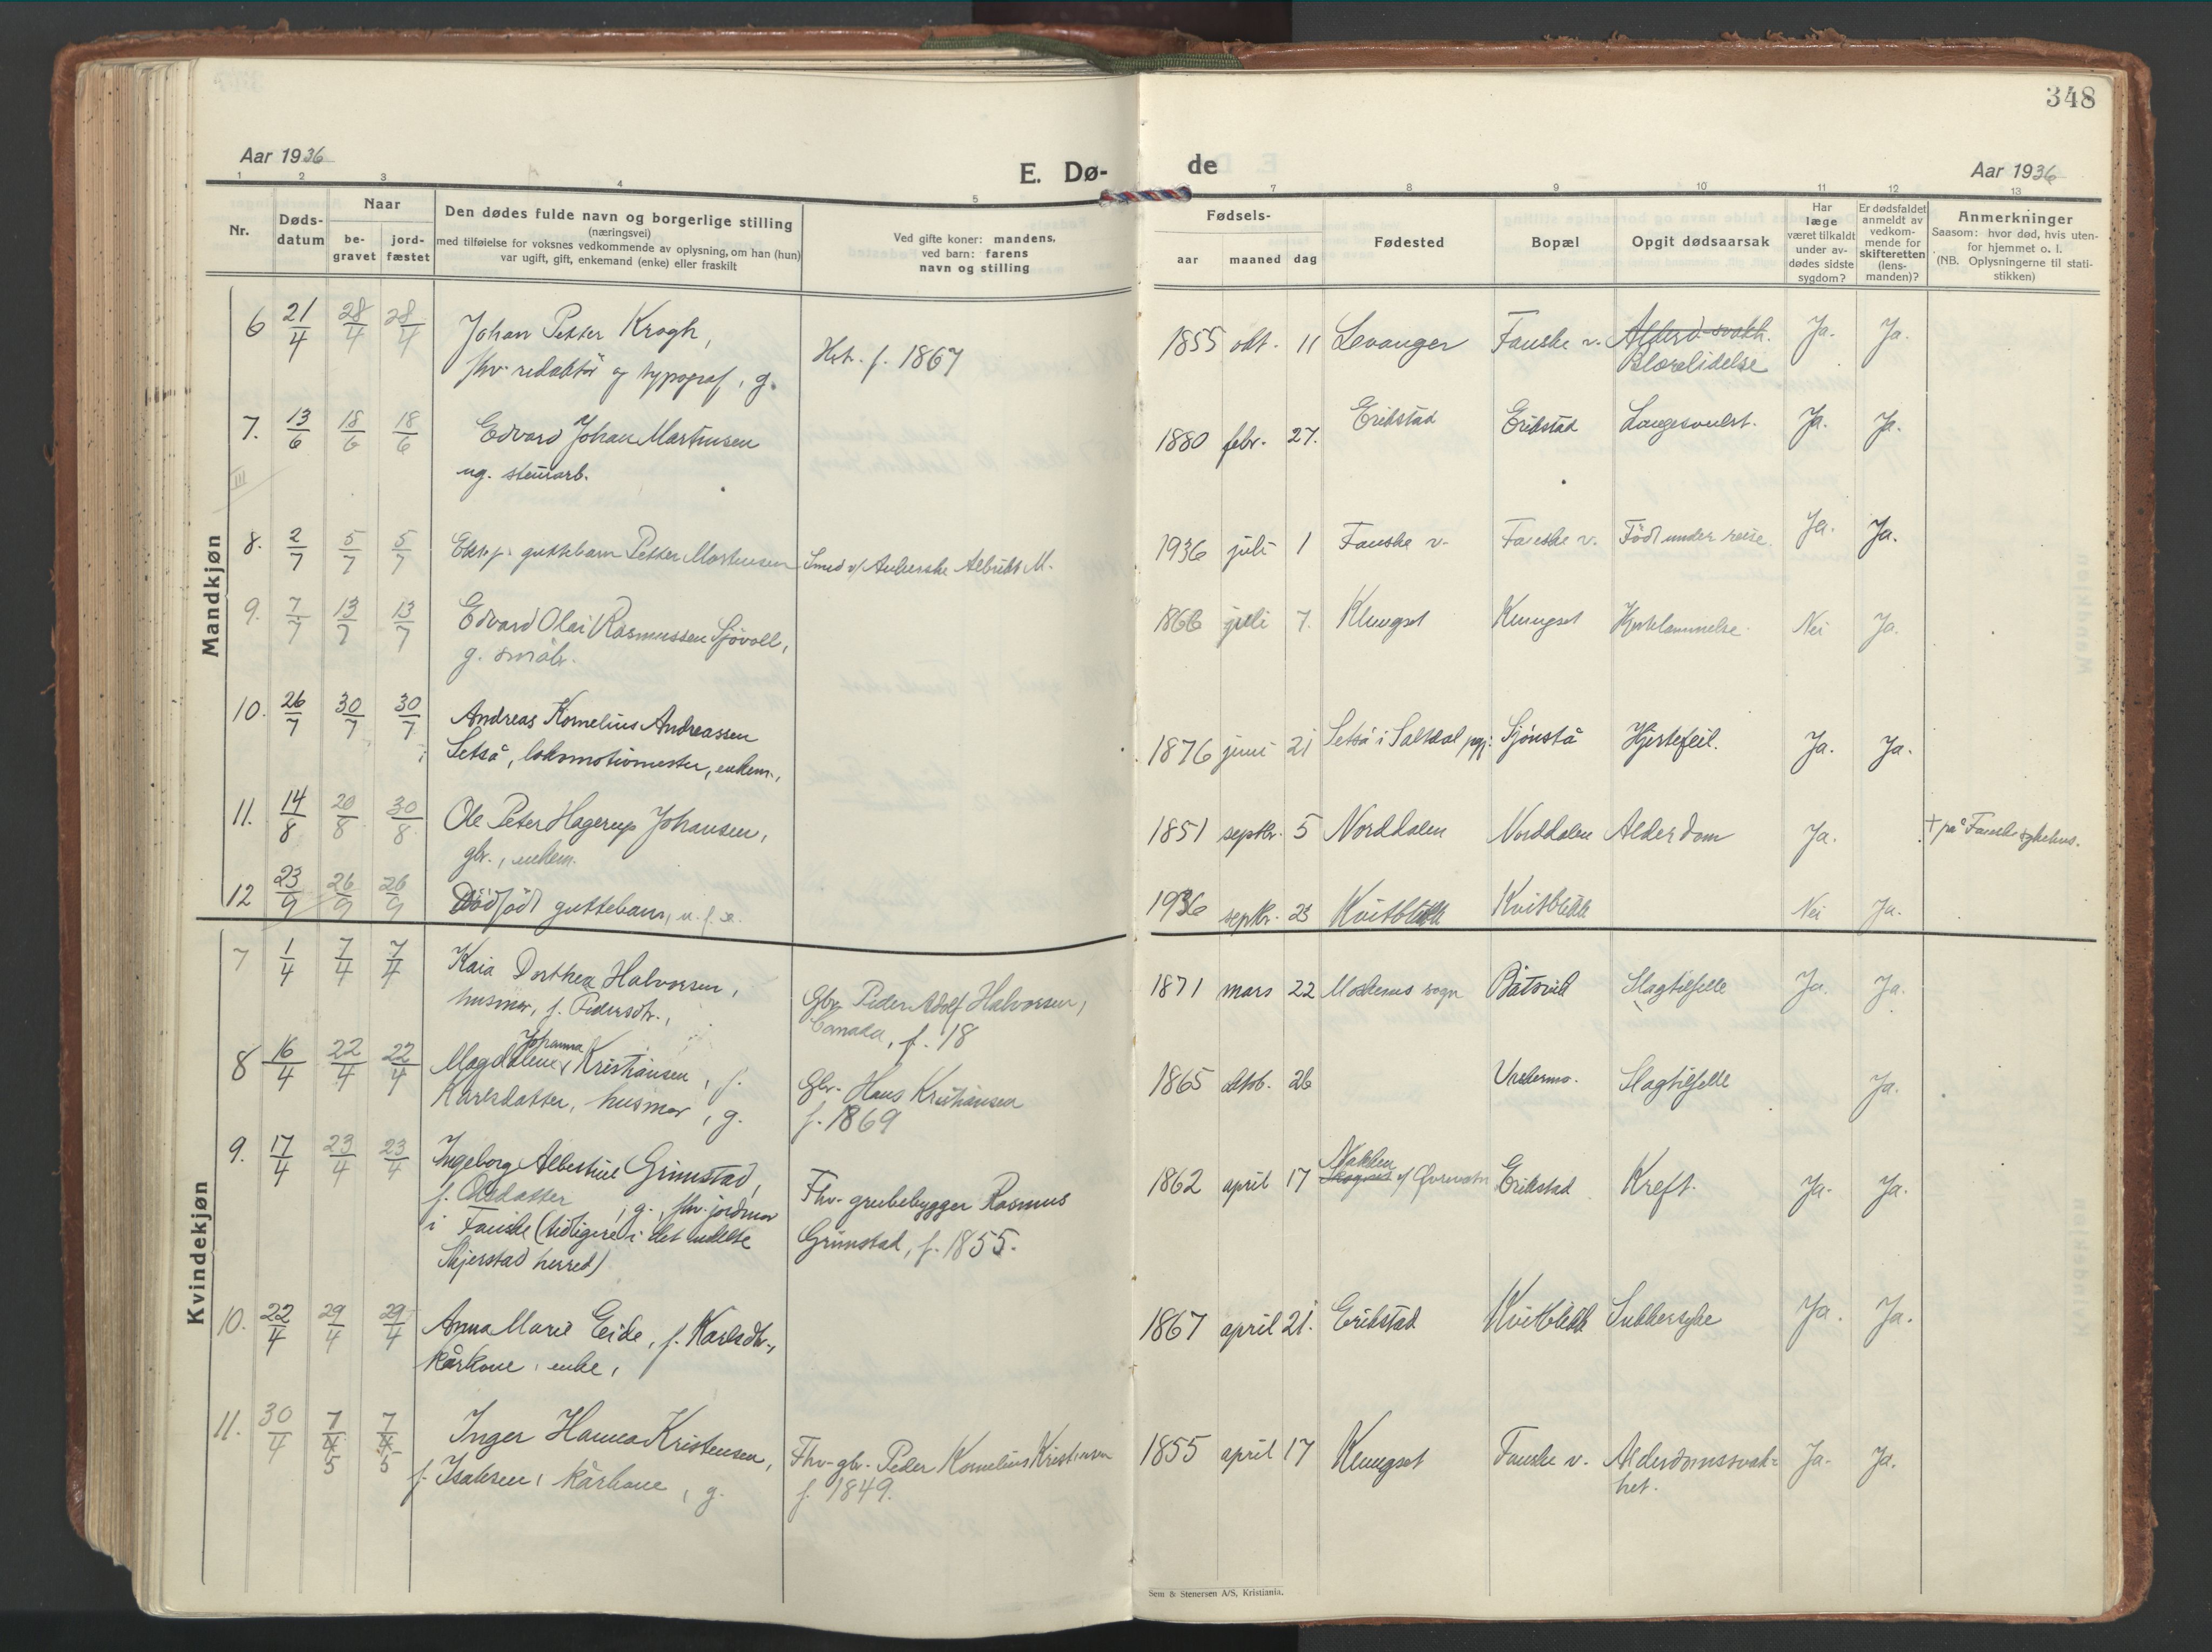 348
Aar 1936
E. Dø-
de
Aar 1936
1 2 3 4 5 7 8 9 10 11 12 13
Nr.
Døds-
datum
Naar
be-
gravet
jord-
fæstet
Den dødes fulde navn og borgerlige stilling
(næringsvei)
med tilføielse for voksnes vedkommende av oplysning, om han (hun)
var ugift, gift, enkemand (enke) eller fraskilt
Ved gifte koner: mandens,
ved barn: farens
navn og stilling
Fødsels-
aar maaned dag
Fødested
Bopæl
Opgit dødsaarsak
Har
læge
været tilkaldt
under av-
dødes sidste
sygdom?
Er dødsfaldet
anmeldt av
vedkom-
mende for
skifteretten
(lens-
manden)?
Anmerkninger
Saasom: hvor død, hvis uten-
for hjemmet o. l.
(NB. Oplysningerne til stati-
stikken)
Mandkjøn
6 21/4 28/4 28/4 Johan Petter Krogh,
fhv. redaktör og typograf, g.
Hst. f. 1867
1855 okt. 11 Levanger Fauske v. Alderd.svakh. Ja. Ja.
Blærelidelse
7. 13/6 18/6 18/6 Edvard Johan Martinsen
ug. steinarb.
1880 febr. 27. Erikstad Erikstad Lungesvulst. Ja. Ja.
III
8. 2/7 5/7 5/7 guttebarn Petter Martinsen
Smed Albrikt M.
1936 juli 1 Fauske v. Fauske v. Född under reise. Ja. Ja.
9. 7/7 13/7 13/7 Edvard Olai Rasmussen Sjövoll,
g. småbr.
1866 juli 7. Klungset Klungset Hjertelammelse. Nei Ja.
10. 26/7 30/7 30/7 Andreas Kornelius Andreassen
Setså, lokomotivmester, enkem.,
1876 juni 21 Setså i Saltdal pgj. Sjönstå Hjertefeil. Ja. Ja.
11. 14/8 20/8 30/8 Ole Peter Hagerup Johansen,
gbr., enkem.
1851 septbr. 5 Norddalen Norddalen Alderdom Ja. † på Fauske sykehus.
12 23/9 26/9 26/9 Dödfödt guttebarn, u. f. æ.
1936 septbr. 23 Kvitblikk Kvitblikk Nei Ja.
Kvindekjøn
7 1/4 7/4 7/4 Kaia Dorthea Halvorsen,
husmor, f. Pedersdtr.,
Gbr. Peder Adolf Halvorsen,
Canada, f. 18
1871 mars 22 Moskenes sogn Båtsvik Slagtilfelle Ja. Ja.
8 16/4 22/4 22/4 Johanna
Magdalene Kristiansen, f.
Karlsdatter, husmor, g.
Gbr. Hans Kristiansen
f. 1869
1865 oktob. 26 Slagtilfelle Ja.
9. 17/4 23/4 23/4 Ingeborg Albertine Grimstad,
f. Olsdatter, g., fhv. jordmor
i Fauske (tidligere i det udelte
Skjerstad herred)
Fhv. grubebygger Rasmus
Grimstad, f. 1855.
1862 april 17 Nakken Erikstad Kreft. Ja. Ja.
10. 22/4 29/4 29/4 Anna Marie Eide, f. Karlsdtr.,
kårkone, enke,
1867 april 21. Erikstad Kvitblikk Sukkersyke Ja. Ja.
11. 30/4 7/5 7/5 Inger Hanna Kristensen,
f. Isaksen, kårkone, g.
Fhv. gbr. Peder Kornelius Kristensen
f. 1849.
1855 april 17 Klungset Fauske v. Alderdomssvak-
het. Ja. Ja.
Sem & Stenersen A/S, Kristiania.